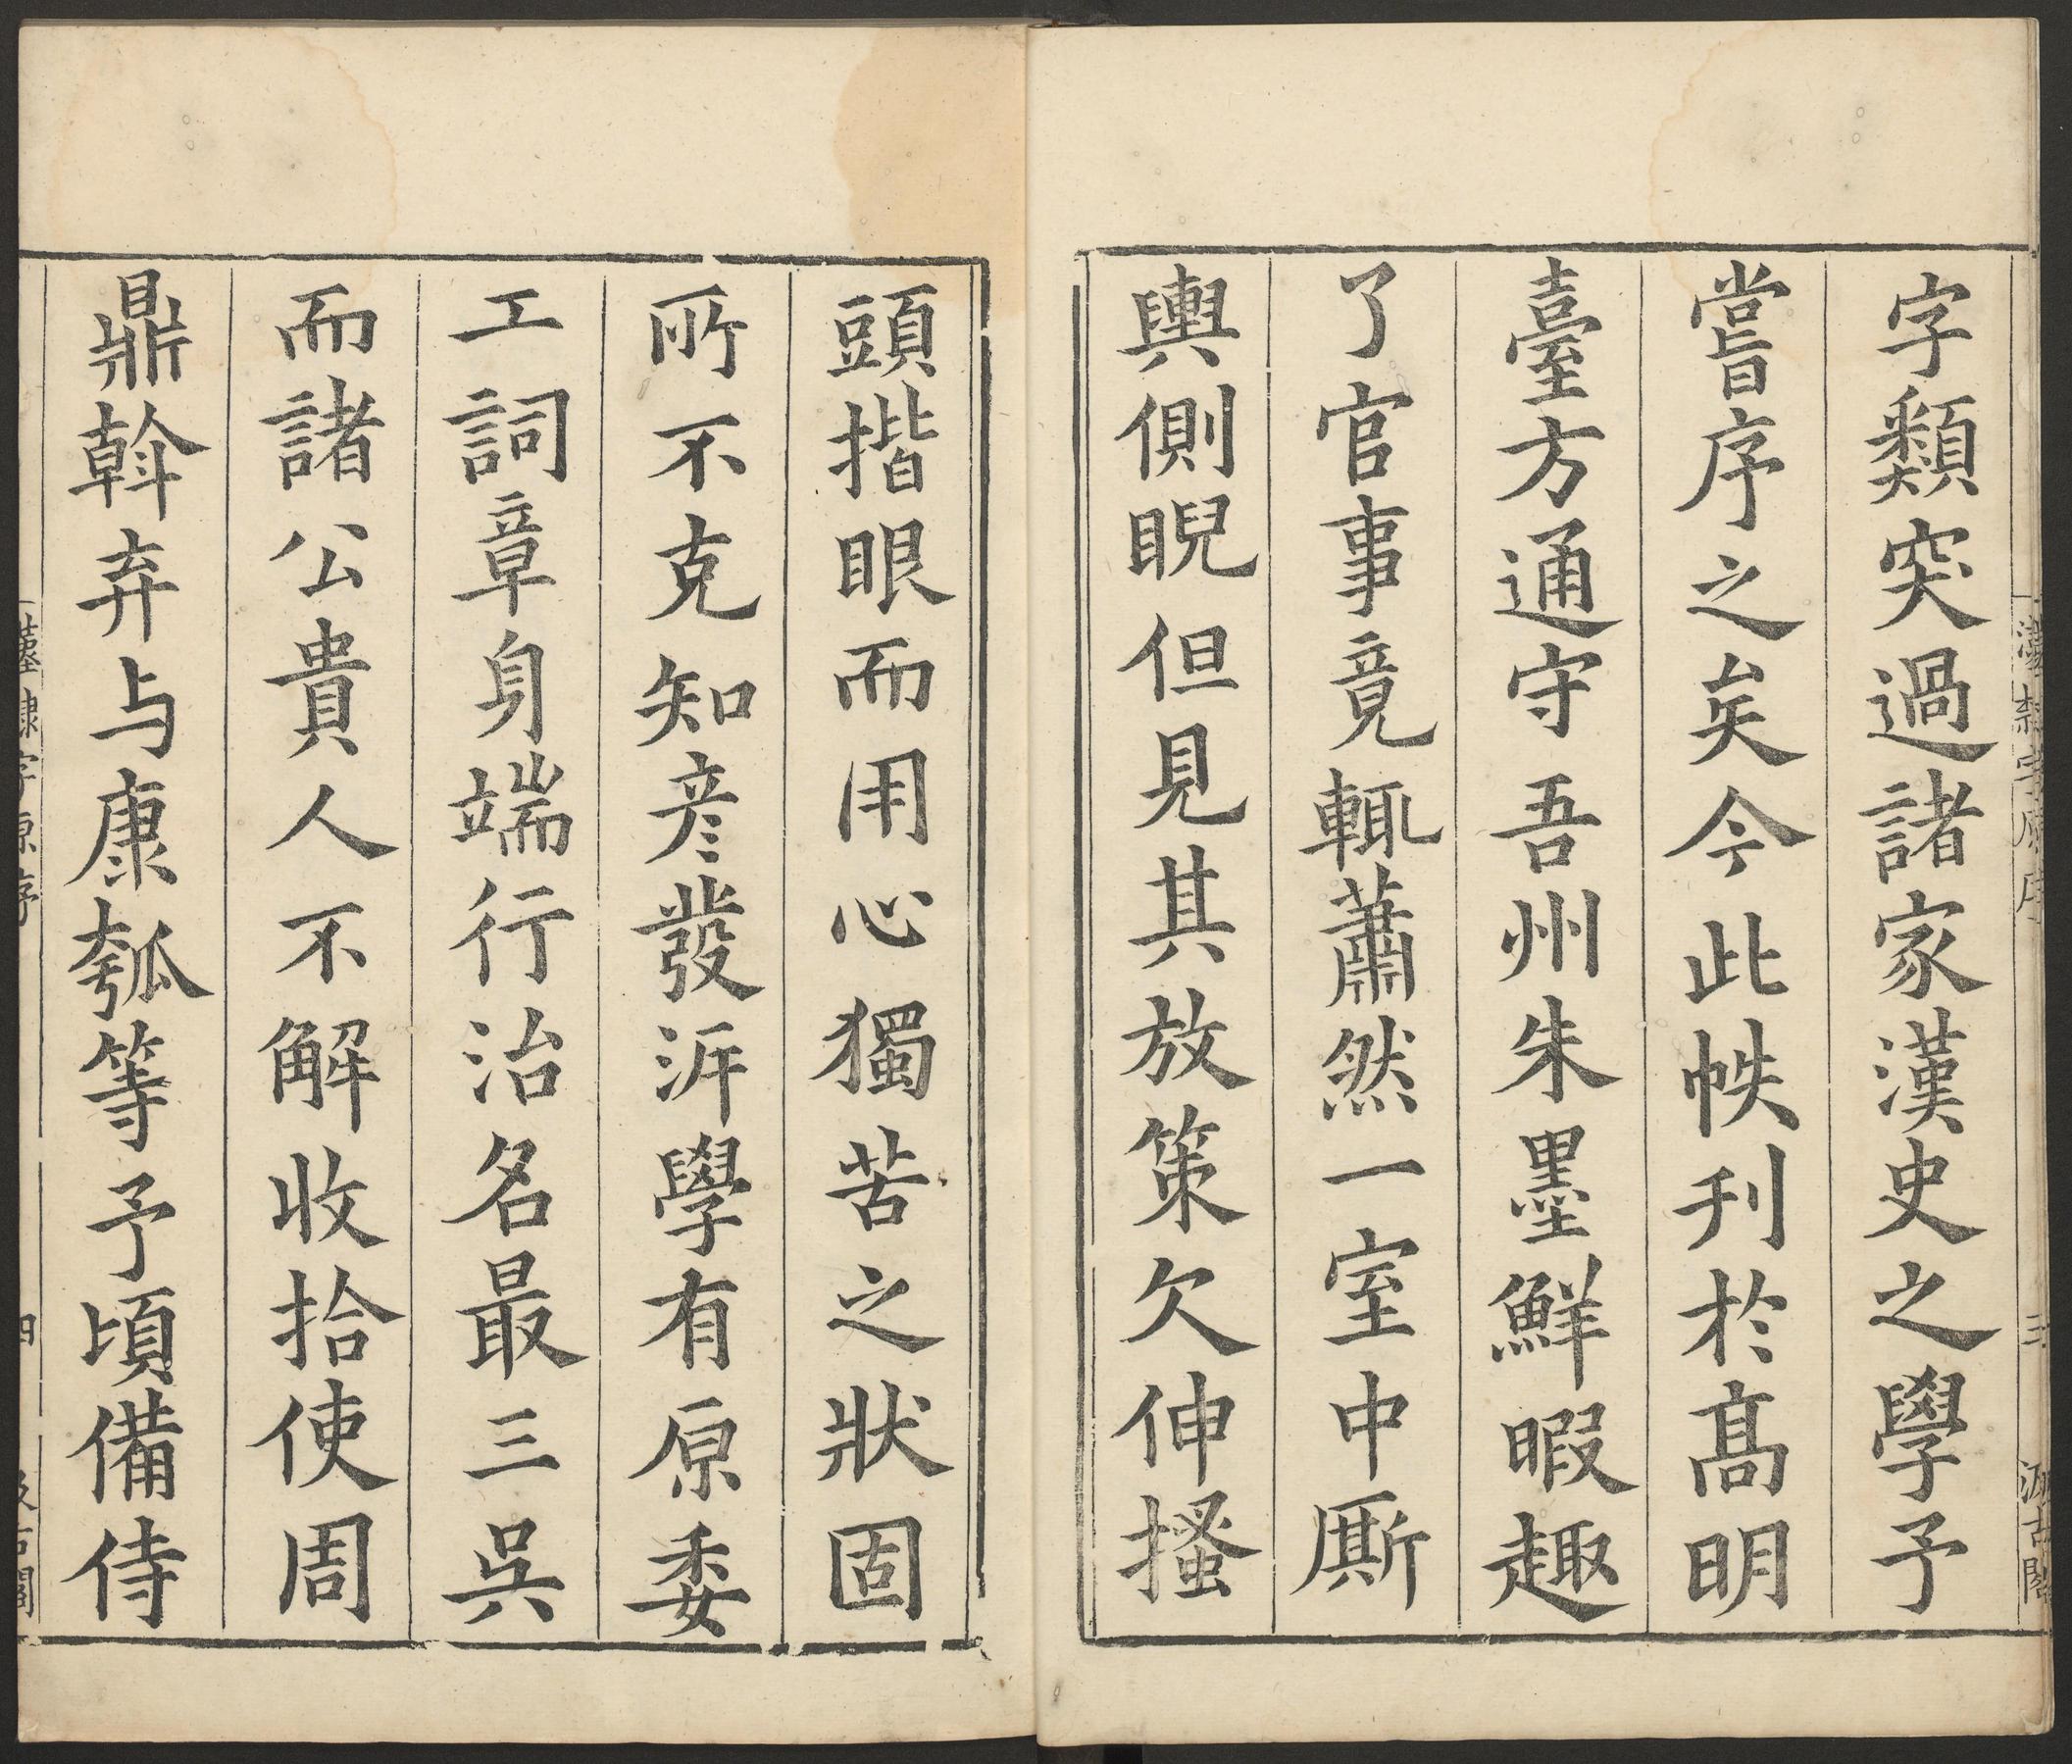 字類突過諸家漢史之學予
嘗序之矣今此帙刊於髙明
臺方通守吾州朱墨鮮暇趣
了官事竟輒蕭然一室中厮
輿側睨但見其放策欠伸搔
頭揩眼而用心獨苦之狀固
所不克知彦發泝學有原委
工詞章身端行治名最三吳
而諸公貴人不解收拾使周
鼎斡弃与康瓠等予頃備侍
漢隸字原序
四
汲古閣